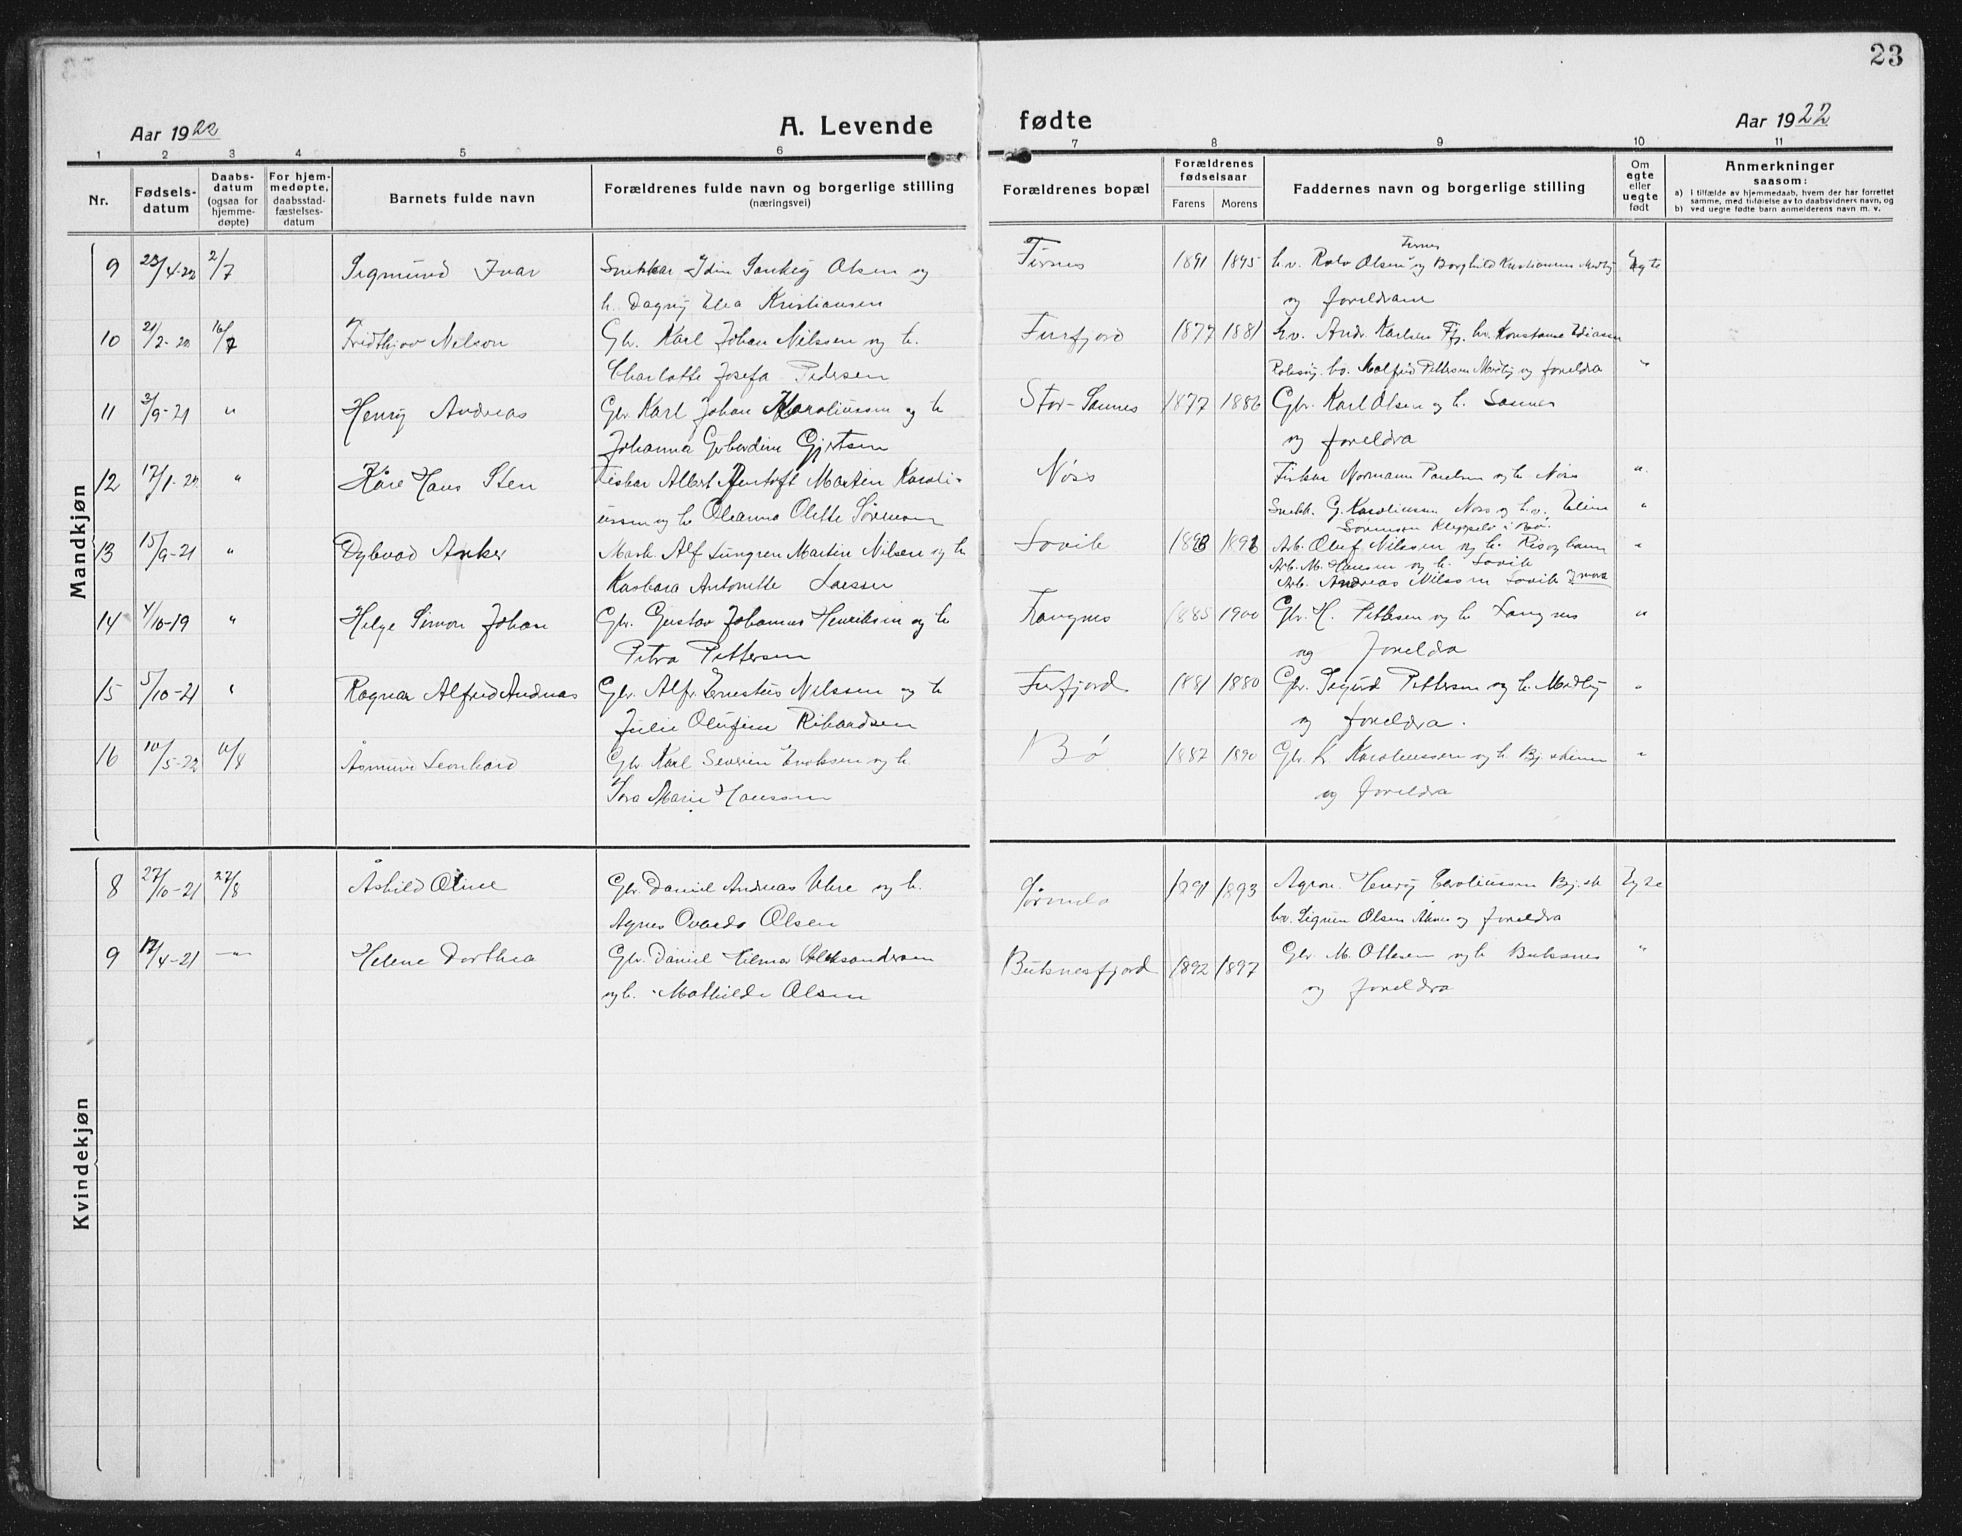 23
Aar 1922 A. Levende fødte Aar 1922
1 2 3 4 5 6 7 8 9 10 11
Nr.
Fødselsdatum
Daabsdatum (ogsaa for hjemmedøpte)
For hjemmedøpte, daabsstadfæstelsesdatum
Barnets fulde navn
Forældrenes fulde navn og borgerlige stilling
(næringsvei)
Forældrenes bopæl
Forældrenes fødselsaar
Farens Morens
Faddernes navn og borgerlige stilling
Om egte eller uegte født
Anmerkninger
saasom:
a) I tilfælde av hjemmedaab, hvem der har forrettet
samme, med tilføielse av to daabsvidners navn, og
b) ved uegte fødte barn anmelderens navn m. v.
Mandkjøn
Firnes
9 23/4-22 2/7 Sigmund Ivar Snekkar Idin Olsen og Firnes 1891 1895 h.v. Rolv Olsen og Borghild Kristiansen Medby Egte
h. Dagny Elea Kristiansen og foreldrane
10 21/2-22 16/7 Fridthjov Nelson Gbr. Karl Johan Nilssen og h. Furfjord 1877 1881 h.v. Andr. Karlsen Ffj. hv. Konstanse
Charlotte Josefa Pedersen hv. Malfrid Pettersen Medby og foreldra "
11 3/9-21 " Henry Andreas Gbr Karl Johan Karoliussen og h Stor-Sannes 1877 1886 Gbr. Karl Olsen og h. Sannes
Johanna Gjertsen og foreldra
12 17/1-22 " Kåre Hans Sten Fiskar Albert Martin Karoli- Nøss Fiskar Normann Paulsen og h Nøss "
ussen og h Oleanna Olette Sørensen Snekk. G. Karoliussen Nøss og h.v. "
Sørensen i Bø.
13 15/9-21 " Dybvad Anker Mask. Alf Lungren Martin Nilsen og h Lovik Arb. Oluf Nilssen og h. Risøyhamn "
Arb. M. Hansen og h. Lovik
Kasbara Antonette Larssen Arb. Andreas Nilssen Lovik
14 4/10-19 " Helge Simon Johan Gbr. Gustav Johannes Henriksen og h Langnes 1885 1900 Gbr. H. Pettersen og h Langnes "
Petra Pettersen og foreldra
15 5/10-21 " Ragnar Alfred Andreas Gbr. Alfr. Ernestus Nilssen og h Furfjord 1881 1880 Gbr. Sigurd Pettersen og h. Medby "
Julie Olufine Rikardsen og foreldra.
16 10/5-22 Åsmund Leonhard Gbr Karl Severin Eriksen og h. Bø 1887 1890 Gbr. K. Karoliussen og h. Bj. skinn "
Tora Marie Hanssen og foreldra
Kvindekjøn
8 27/10-21 27/8 Åshild Oline Gbr. Daniel Andreas og h. 1891 1893 Agron. Henry Caroliussen Bj.sk Egte
Agnes Ovarda Olsen hv. Signe Olsen Åknes og foreldra
9 17/4-21 —"— Helene Dorthea Gbr. Daniel Hilmar Aleksandersen Buksnesfjord 1892 1897 Gbr. M. Ottesen og h Buksnes "
og h. Mathilde Olsen og foreldra